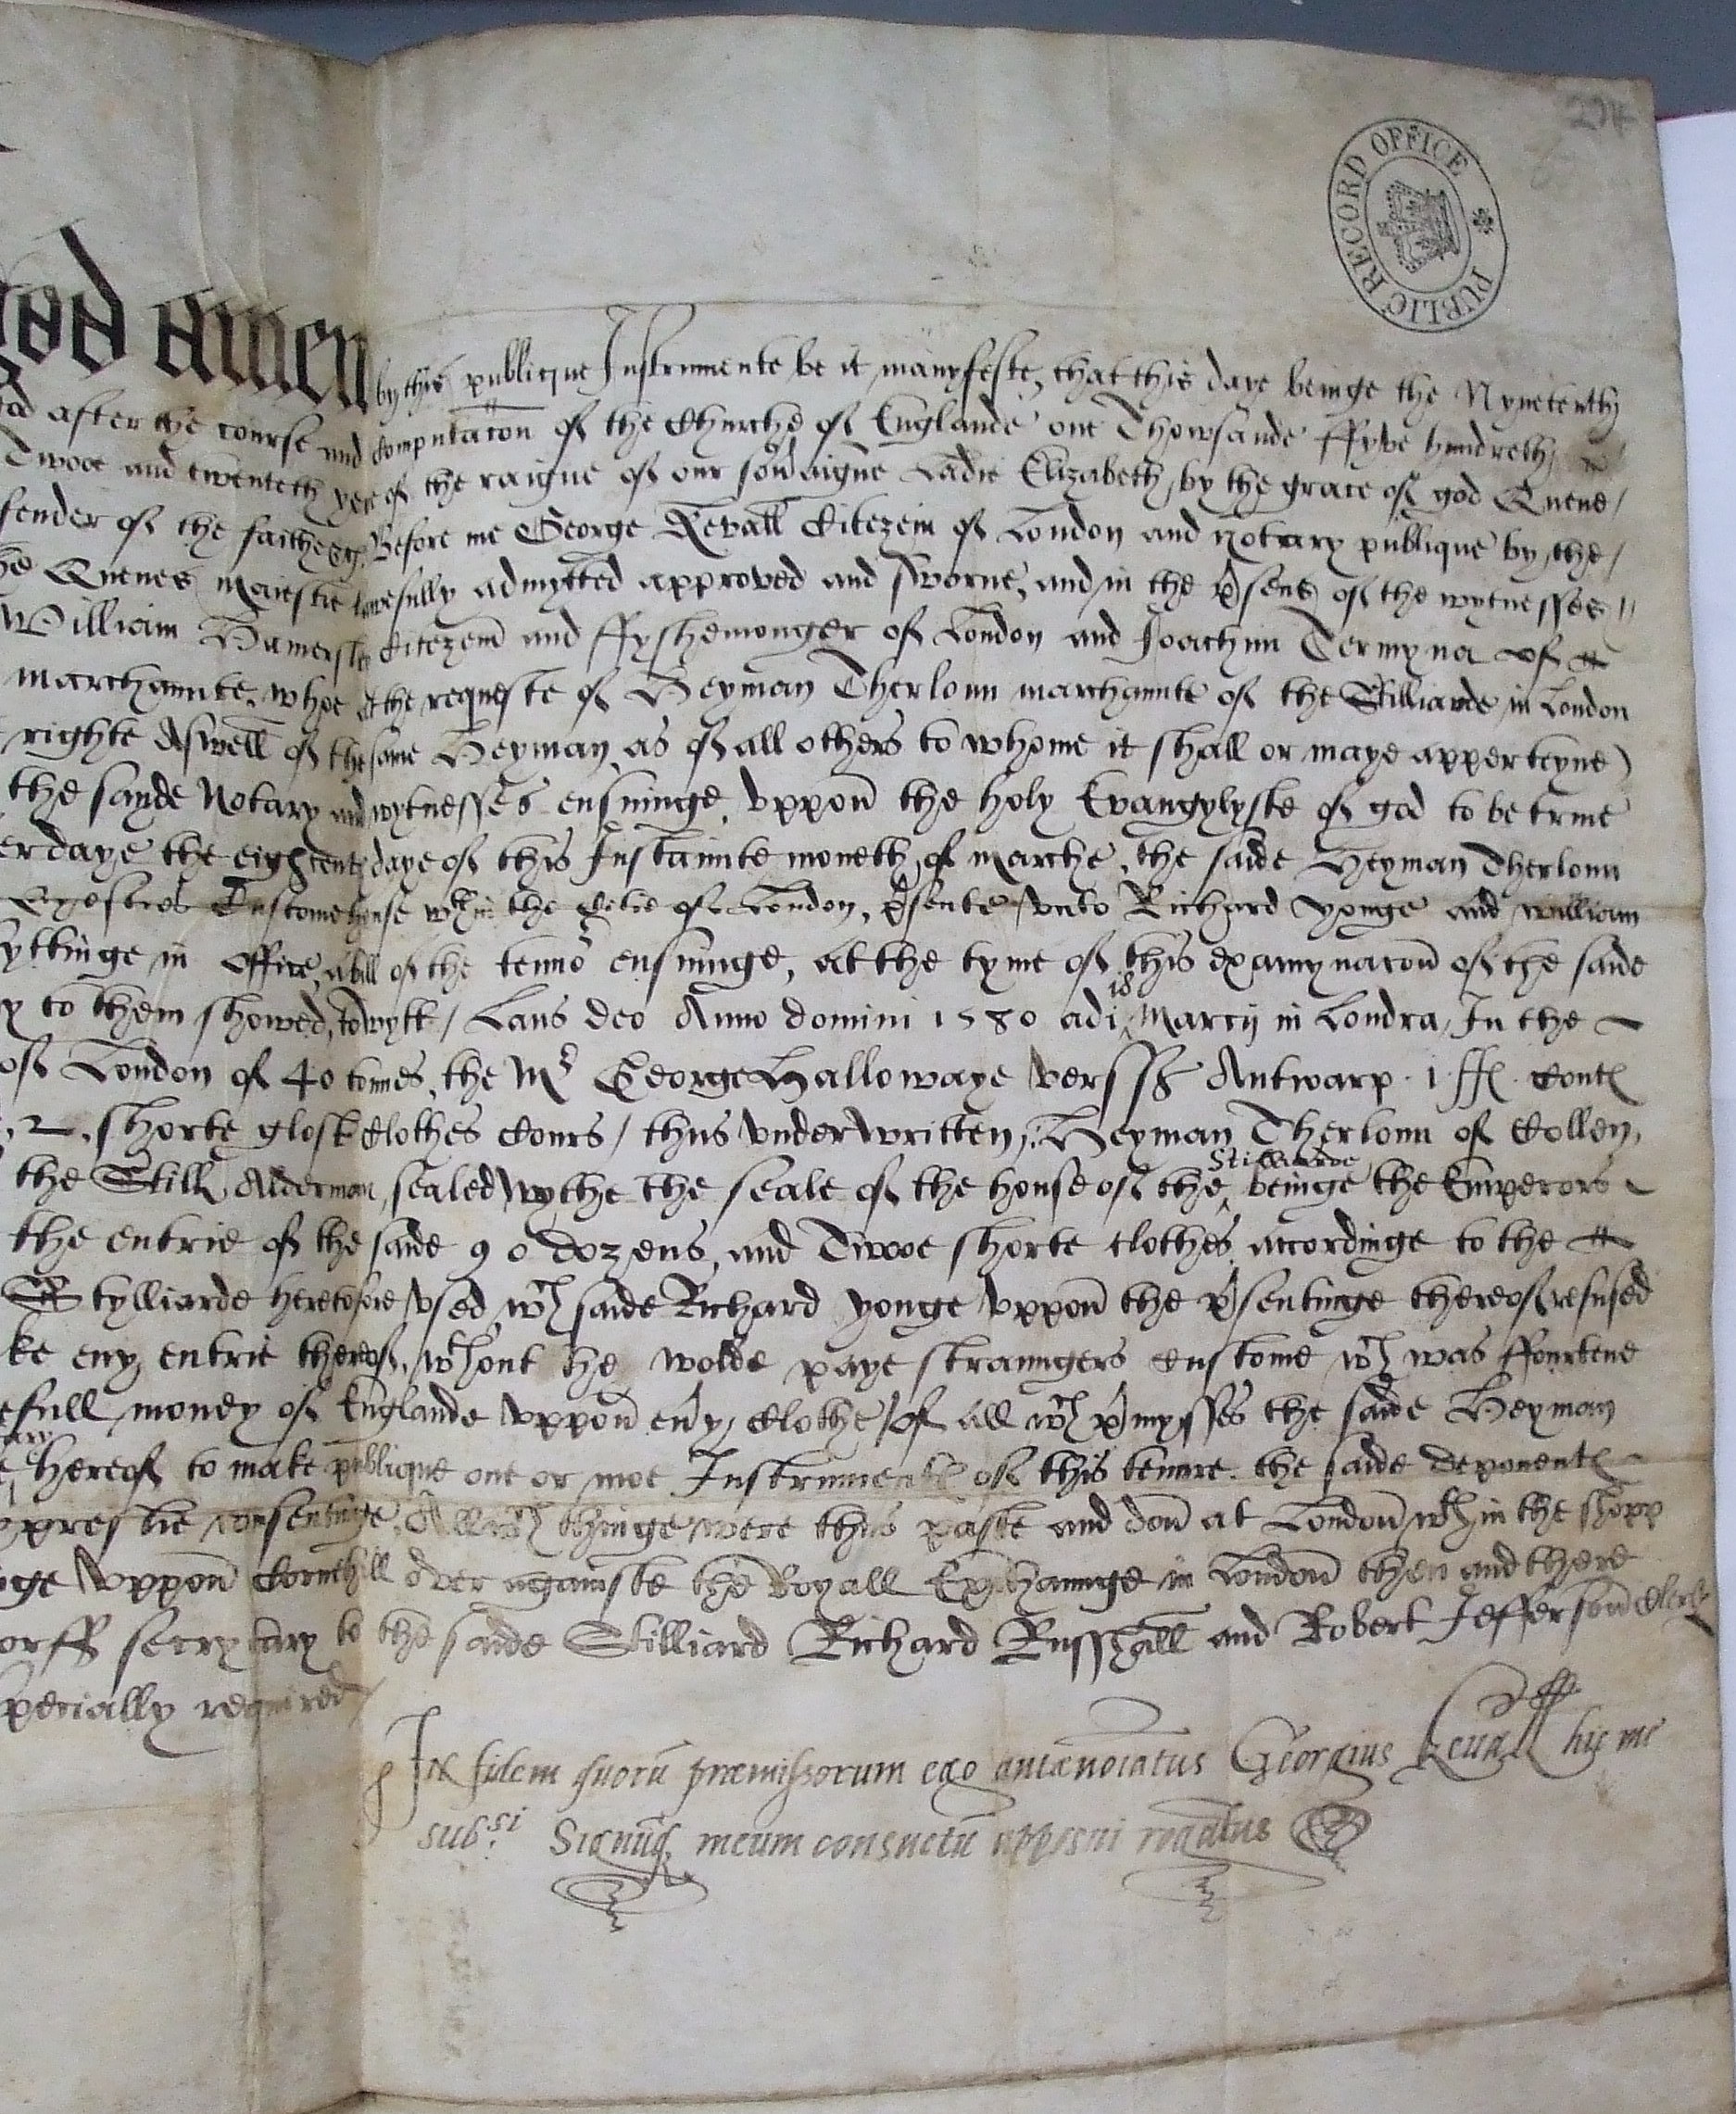 274
PUBLIC RECORD OFFICE
god amen by this publique Instrumente be it manyfeste, that this daye beinge the Nyneteenth
after the course and computac͠on of the Churche of Englande one Thowsande ffyve hundreth
Twoe and twenteth yere of the raigne of our sov͠aigne Ladie Elizabeth, by the grace of god Quene /
fender of the faithe &c. Before me George Kevall Citezein of London and notary publique by the /
he Quenes Maiestie lawefully admytted approved and sworne, and in the p̃sens of the wytnesses
William Hamersley Citezein and ffyshemonger of London and Joachim Termyna of
marchaunte, whoe at the requeste of Heyman Therlonn marchaunte of the Stilliarde in London
righte Aswell of the same Heyman, as of all others to whome it shall or maye apperteyne)
the sayde Notary and wytnesses ensuinge, uppon the holy Evangelyste of god to be true
erdaye the eightenth daye of this Instaunte moneth of Marche, the saide Heyman Therlonn
Customehouse wth in the Citie of London, p̃sente unto Richard yonge and william
yttinge in office, a bill of the tenno͠ ensuinge, at the tyme of this examynac͠on of the saide
y to them showed, to wytt / Laus deo Anno domini 1580 adi 18 Marcij in Londra, In the
of London of 40 tonnes, the Mr George Hallowaye verss Antwarp . 1 ff . Cont
. 2 . shorte glost Clothes Cours / thus underwritten, Heyman Therlonn of Collen,
the Still Alderman, sealed wythe the seale of the house of the Stilliarde beinge the Emperors
the entrie of the saide 90 dozens, and Twoe shorte clothes, accordinge to the
Stylliarde heretofore used, wch saide Richard yonge uppon the p̃sentinge thereof refused
ke eny entrie thereof, wthout he wolde paye straungers custome wch was ffourtene
efull money of Englande uppon ev͠y Clothe / of all wch p̃mysses the saide Heyman
hereof to make publique one or moe Instrumente of this tenure. the saide deponente
xpresslie consentinge, All wch thinge were thus paste and don at London wth in the shopp
nge uppon Cornehill over againste the Royall Exchaunge in London then and there
orff secrytary to the saide Stilliard Richard Russhall and Robert Jefferson Clerk
pecially required
In fidem quorū præmissorum ego antænotatus Georgius Kevall hic me
subsi. Signūq meum consuetū apposui rogatus